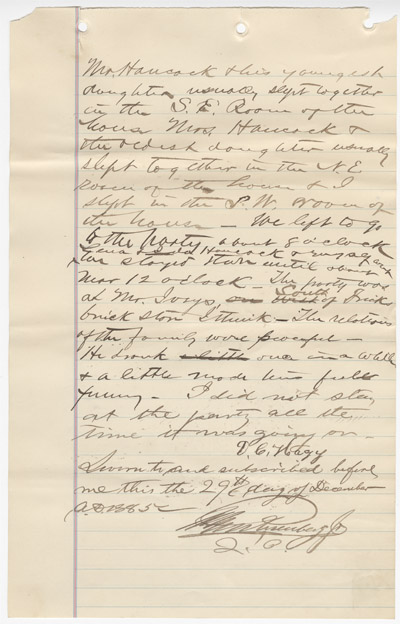 Mr. Hancock & his youngest
daughter usually slept together
in the S.E. Room of the
house Mrs Hancock &
the oldest daughter usually
slept together in the N.E.
room of the house & I
slept in the S.W. room of
the house — We left to go
to the party about 8 o'clock
Hancock & myself and
we stayed there until about
near 12 o'clock — The party was
at Mr. Ivey's, South of
brick store I think — The relations
of the family were peaceful —
He drank a little once in a while
& a little made him feel
funny — I did not stay
at the party all the
time it was going on —
V. C. Nagy
Sworn to and subscribed before
me this the 29th day of December
A.D. 1885
J. P.